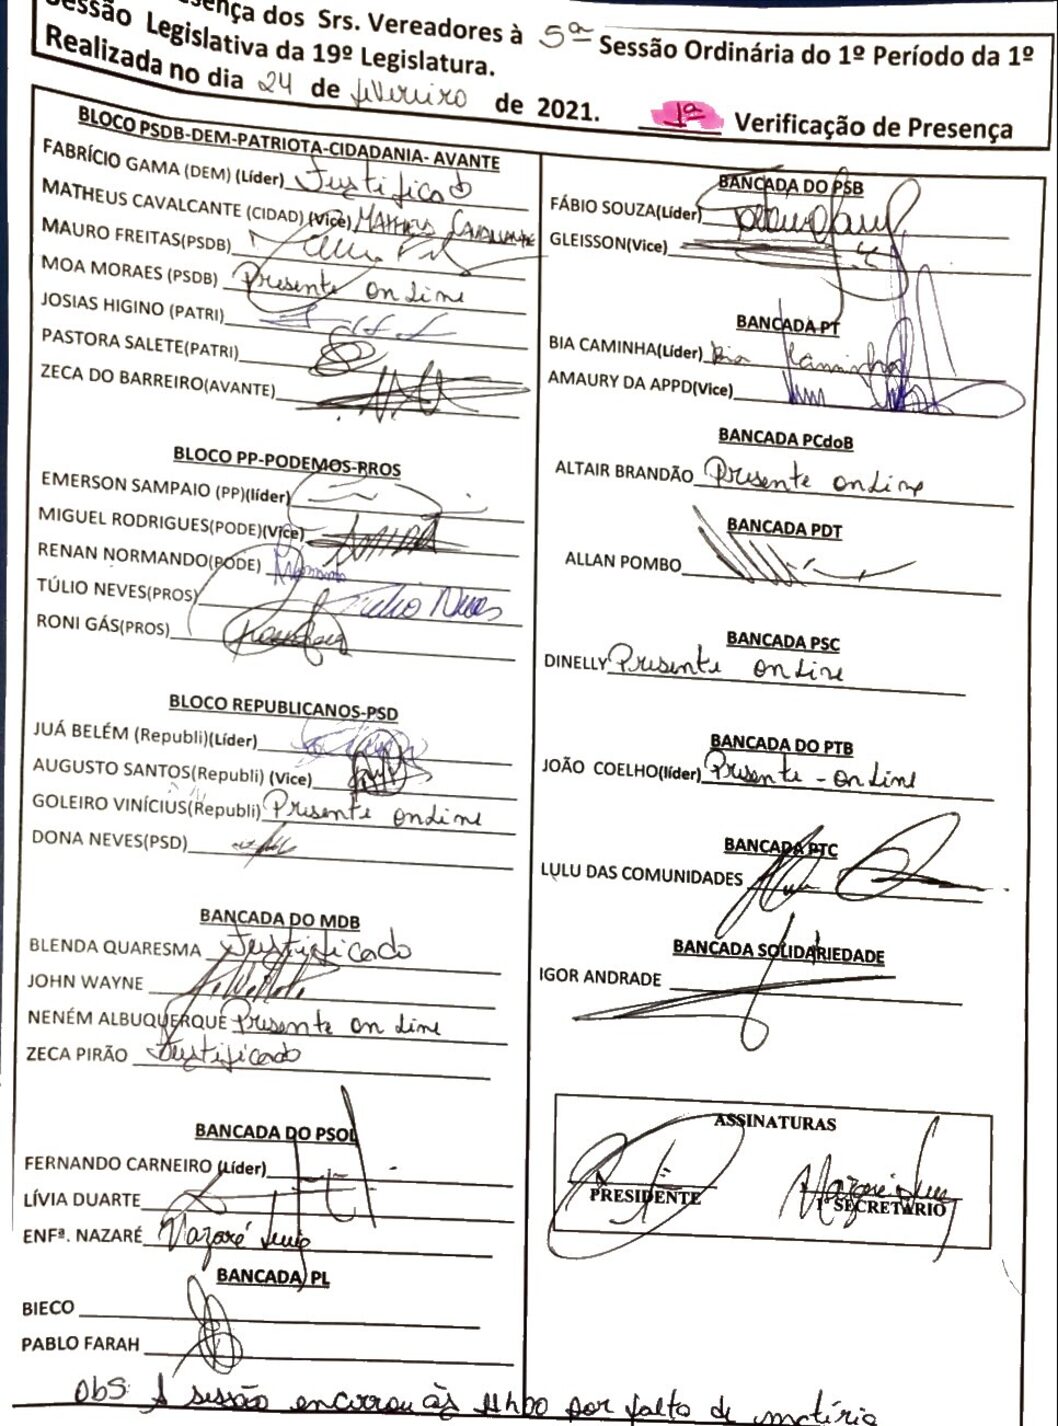 sença dos Srs. Vereadores à 5ª Sessão Ordinária do 1º Período da 1ª
Sessão Legislativa da 19º Legislatura.
Realizada no dia 24 de fevereiro de 2021. 1ª Verificação de Presença
BLOCO PSDB-DEM-PATRIOTA-CIDADANIA- AVANTE
FABRÍCIO GAMA (DEM) (Líder) Justificado
MATHEUS CAVALCANTE (CIDAD) (Vice) MATHEUS CAVALCANTE
MAURO FREITAS(PSDB)
MOA MORAES (PSDB) Presente on Line
JOSIAS HIGINO (PATRI)
PASTORA SALETE(PATRI)
ZECA DO BARREIRO(AVANTE)
BLOCO PP-PODEMOS-RROS
EMERSON SAMPAIO (PP)(líder)
MIGUEL RODRIGUES(PODE)(Vice)
RENAN NORMANDO(PODE)
TÚLIO NEVES(PROS) Túlio Neves
RONI GÁS(PROS)
BLOCO REPUBLICANOS-PSD
JUÁ BELÉM (Republi)(Líder)
AUGUSTO SANTOS(Republi) (Vice)
GOLEIRO VINÍCIUS(Republi) Presente online
DONA NEVES(PSD)
BANCADA DO MDB
BLENDA QUARESMA Justificado
JOHN WAYNE
NENÉM ALBUQUERQUE Presente on Line
ZECA PIRÃO Justificado
BANCADA DO PSOL
FERNANDO CARNEIRO (Líder)
LÍVIA DUARTE
ENFª. NAZARÉ Nazaré
BANCADA PL
BIECO
PABLO FARAH
BANCADA DO PSB
FÁBIO SOUZA(Líder)
GLEISSON(Vice)
BANCADA PT
BIA CAMINHA(Líder) Bia Caminha
AMAURY DA APPD(Vice)
BANCADA PCdoB
ALTAIR BRANDÃO Presente onLine
BANCADA PDT
ALLAN POMBO
BANCADA PSC
DINELLY Presente onLine
BANCADA DO PTB
JOÃO COELHO(líder) Presente - onLine
BANCADA PTC
LULU DAS COMUNIDADES
BANCADA SOLIDARIEDADE
IGOR ANDRADE
ASSINATURAS
Nazaré
PRESIDENTE 1º SECRETÁRIO
Obs: A sessão encerrou às 11h00 por falta de matéria